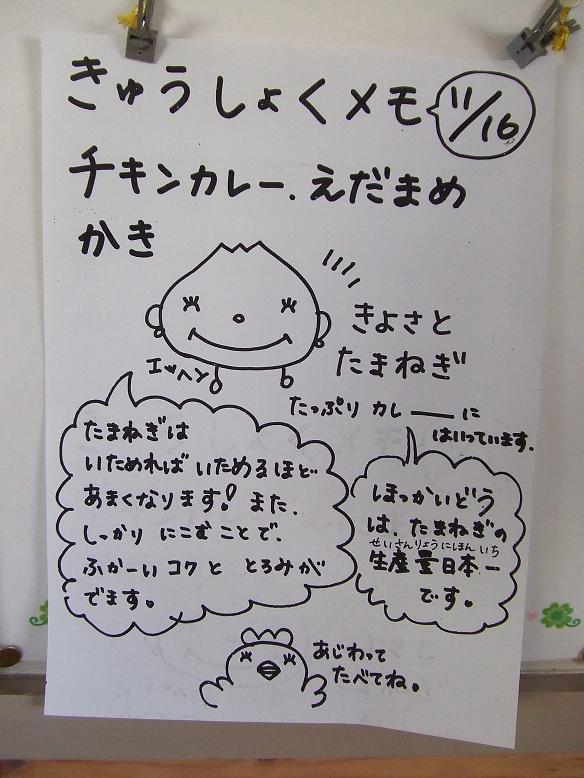 きゅうしょくメモ 11/16
チキンカレー、えだまめ
かき
きよさと
たまねぎ
エッヘン
たっぷり カレーに
はいっています。
たまねぎは
いためれば いためるほど
あまくなります! また、
しっかり にこむ ことで、
ふかーい コク と とろみが
でます。
ほっかいどう
は、たまねぎの
せいさんりょうにほんいち
生産量日本一
です。
あじわって
たべてね。